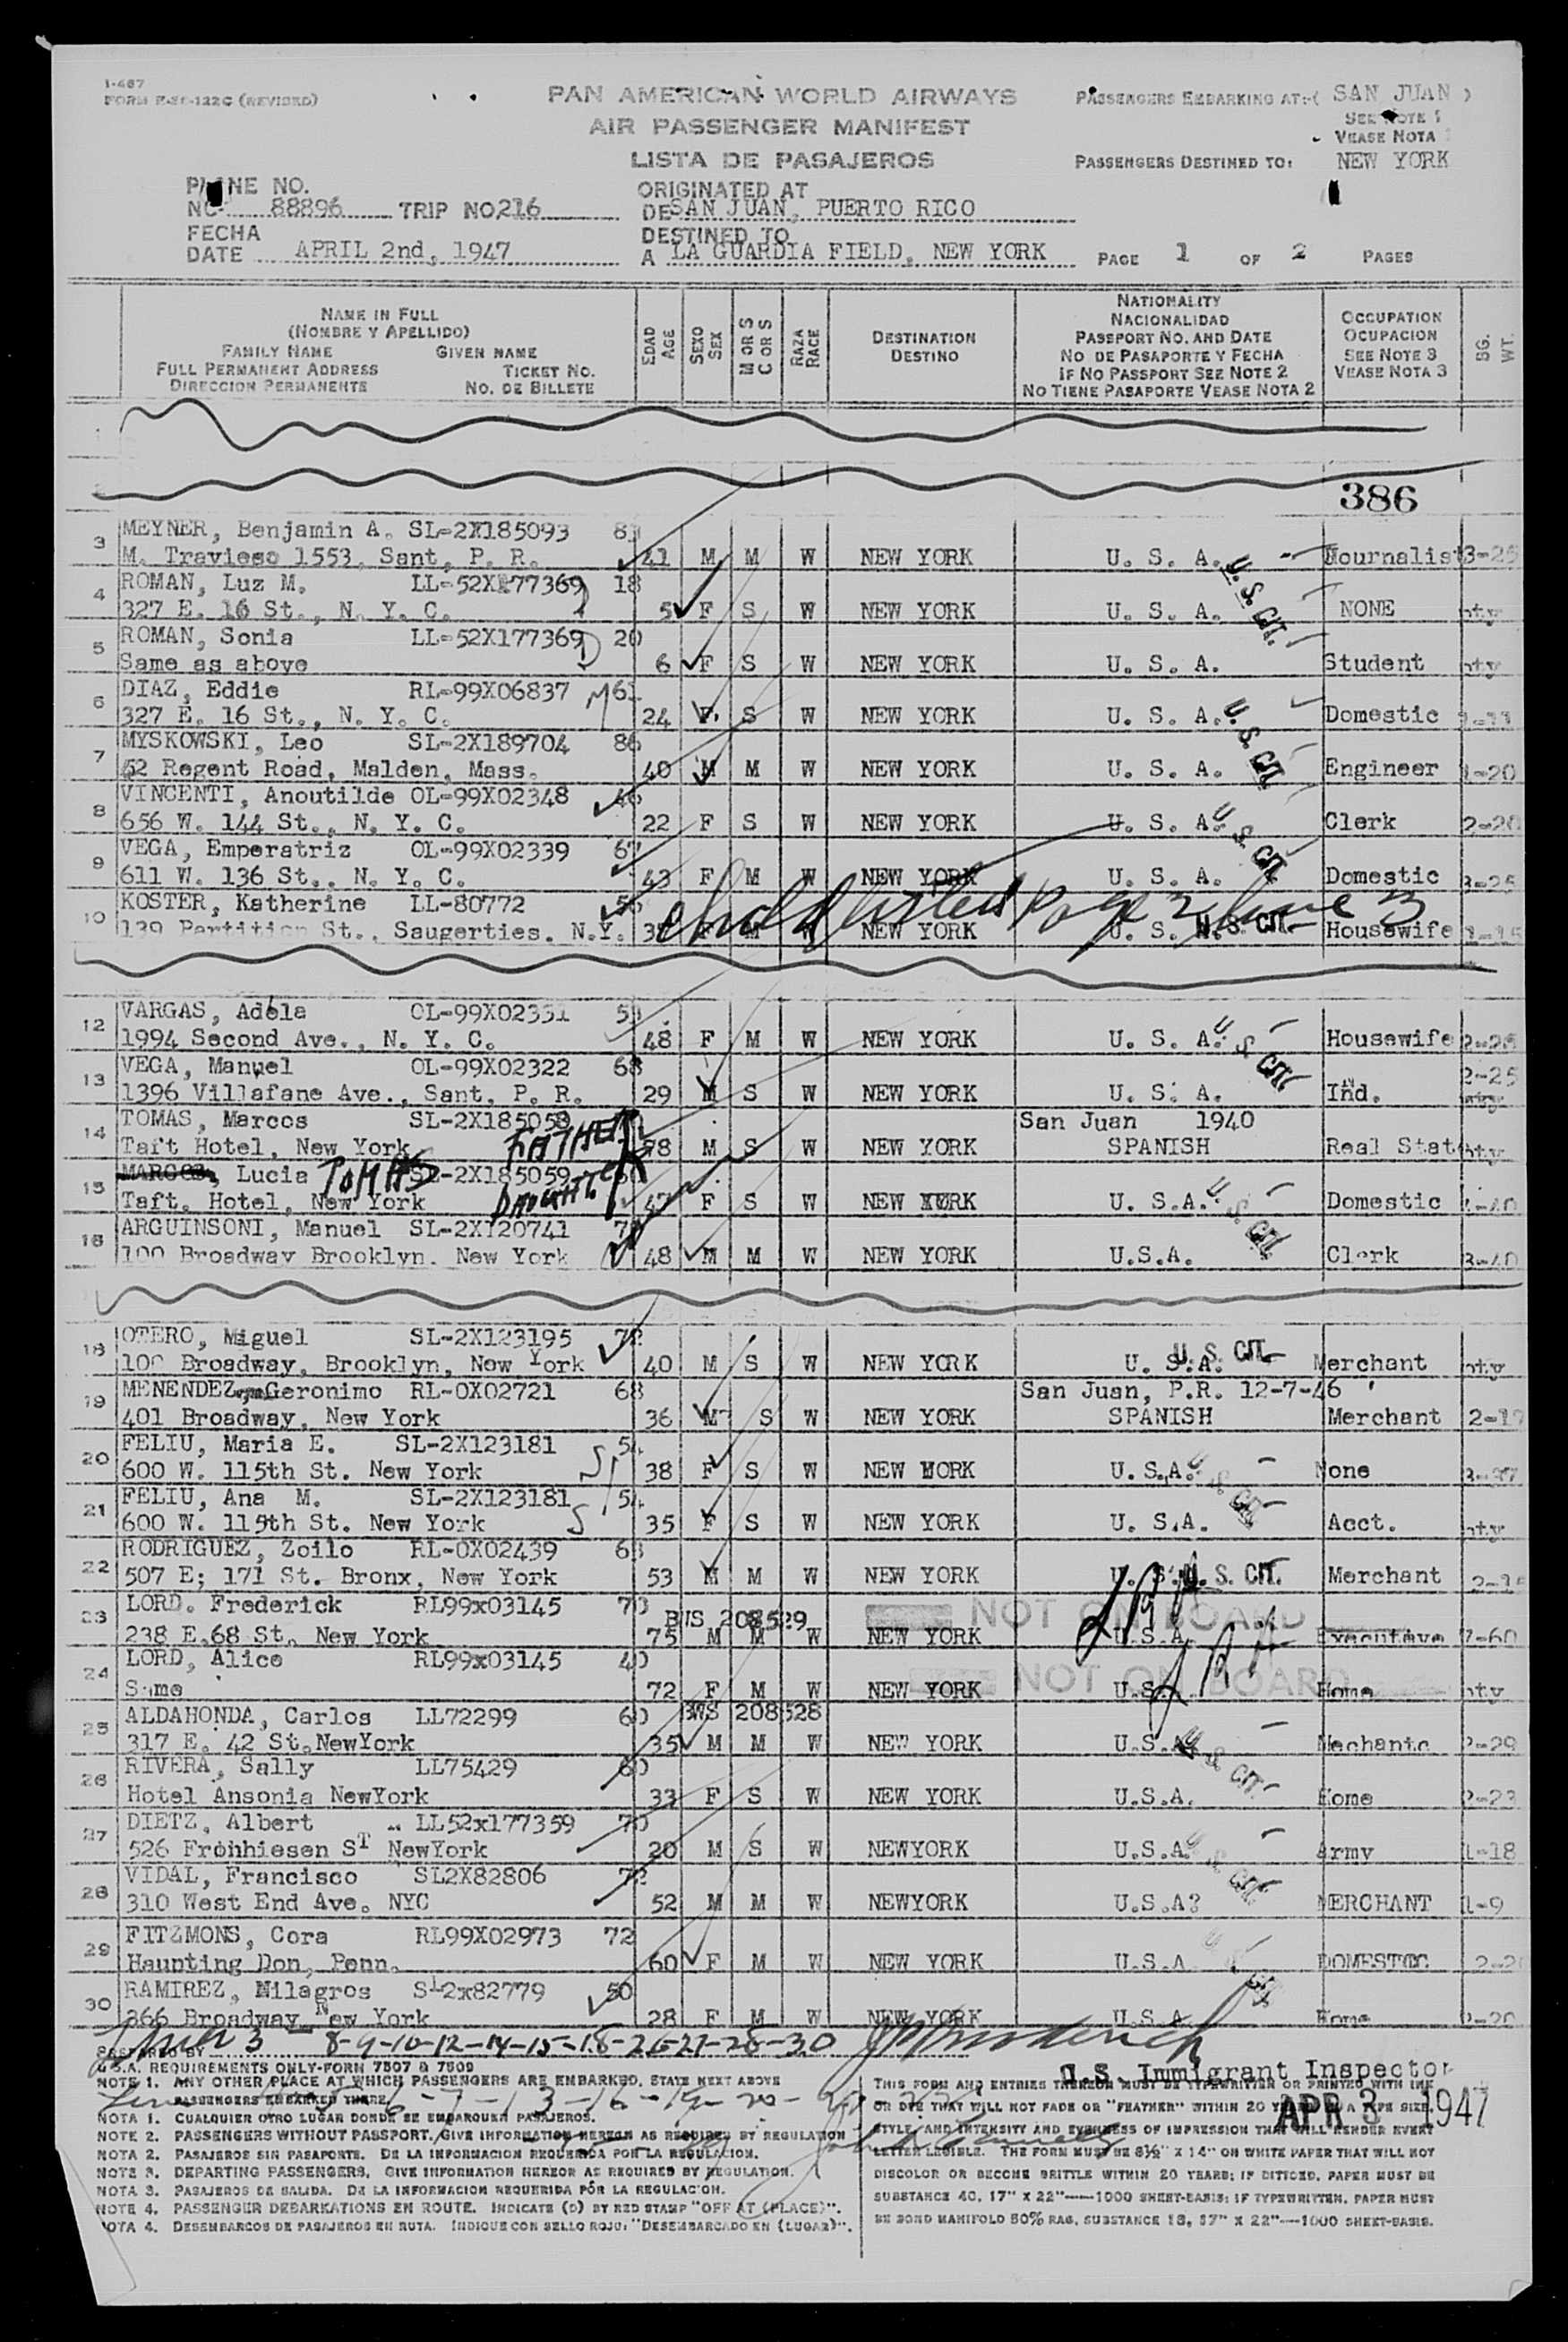 I-467
FORM E-21-122C (REVISED)
PAN AMERICAN WORLD AIRWAYS
AIR PASSENGER MANIFEST
LISTA DE PASAJEROS
PASSENGERS EMBARKING AT:-( SAN JUAN )
SEE NOTE 1
VEASE NOTA 1
PASSENGERS DESTINED TO: NEW YORK
PLANE NO.
NC- 88896 TRIP NO. 216
FECHA
DATE APRIL 2nd, 1947
ORIGINATED AT
DE SAN JUAN, PUERTO RICO
DESTINED TO
A LA GUARDIA FIELD, NEW YORK
PAGE 1 OF 2 PAGES
NAME IN FULL
(NOMBRE Y APELLIDO)
FAMILY NAME GIVEN NAME
FULL PERMANENT ADDRESS TICKET NO.
DIRECCION PERMANENTE NO. DE BILLETE
EDAD AGE
SEXO SEX
M OR S C OR S
RAZA RACE
DESTINATION
DESTINO
NATIONALITY
NACIONALIDAD
PASSPORT NO. AND DATE
NO DE PASAPORTE Y FECHA
IF NO PASSPORT SEE NOTE 2
NO TIENE PASAPORTE VEASE NOTA 2
OCCUPATION
OCUPACION
SEE NOTE 3
VEASE NOTA 3
BG. WT.
386
3 MEYNER, Benjamin A. SL-2X185093
M. Travieso 1553, Sant, P. R. 41 M M W NEW YORK U. S. A. Journalist
4 ROMAN, Luz M. LL-52X177369 18
327 E. 16 St., N. Y. C. 5 F S W NEW YORK U. S. A. U. S. CIT. NONE nty
5 ROMAN, Sonia LL-52X177369 20
Same as above 6 F S W NEW YORK U. S. A. Student nty
6 DIAZ, Eddie RL-99X06837 M 61
327 E. 16 St., N. Y. C. 24 F S W NEW YORK U. S. A. Domestic 1-11
7 MYSKOWSKI, Leo SL-2X189704 86
52 Regent Road, Malden, Mass. 40 M M W NEW YORK U. S. A. U. S. CIT. Engineer 1-20
8 VINCENTI, Anoutilde OL-99X02348 46
656 W. 144 St., N. Y. C. 22 F S W NEW YORK U. S. A. Clerk 2-20
9 VEGA, Emperatriz OL-99X02339 67
611 W. 136 St., N. Y. C. 43 F M W NEW YORK U. S. A. U. S. CIT. Domestic 3-25
10 KOSTER, Katherine LL-80772
139 Partition St., Saugerties, N.Y. F M W NEW YORK U. S. A. U. S. CIT. Housewife
Child listed Page 2 line 3
12 VARGAS, Adela OL-99X02331
1994 Second Ave., N. Y. C. 48 F M W NEW YORK U. S. A. Housewife 2-25
13 VEGA, Manuel OL-99X02322 68 2-25
1396 Villafane Ave., Sant, P. R. 29 M S W U. S. A. U. S. CIT. Ind.
14 TOMAS, Marcos SL-2X185058 San Juan 1940
Taft Hotel, New York FATHER 78 M S W NEW YORK SPANISH Real Stat nty
15 MARCOS, Lucia TOMAS SL-2X185059
Taft. Hotel, New York DAUGHTER 47 F S W NEW YORK U. S.A. Domestic
16 ARGUINSONI, Manuel SL-2X120741
100 Broadway Brooklyn. New York 48 M M W NEW YORK U.S.A. U. S. CIT. Clerk 3-40
18 OTERO, Miguel SL-2X123195 72
100 Broadway, Brooklyn, New York 40 M S W NEW YORK U. S.A. U. S. CIT. Merchant nty
19 MENENDEZ, Geronimo RL-0X02721 68 San Juan, P.R. 12-7-46
401 Broadway, New York 36 M S W NEW YORK SPANISH Merchant
20 FELIU, Maria E. SL-2X123181 54
600 W. 115th St. New York S 38 F S W NEW YORK U. S.A. None
21 FELIU, Ana M. SL-2X123181 54
600 W. 115th St. New York S 35 F S W NEW YORK U. S.A. U. S. CIT. Acct. nty
22 RODRIGUEZ, Zoilo RL-0X02439
507 E; 171 St. Bronx, New York 53 M M W NEW YORK U. S. U. S. CIT. Merchant
23 LORD. Frederick RL99x03145 BWS 208529 NOT ON BOARD
238 E.68 St. New York 75 M M W NEW YORK U.S.A. Executive 7-60
24 LORD, Alice RL99x03145 40 NOT ON BOARD
Same 72 F M W NEW YORK U.S. Home nty
25 ALDAHONDA, Carlos LL72299 60 BWS 208528
317 E. 42 St.NewYork 35 M M W NEW YORK U.S.A. Mechanic 2-29
26 RIVERA, Sally LL75429 60
Hotel Ansonia NewYork 33 F S W NEW YORK U.S.A. U. S. CIT. Home 2-23
27 DIETZ, Albert LL52x177359 70
526 Fronhiesen ST NewYork 20 M S W NEWYORK U.S.A. Army 1-18
28 VIDAL, Francisco SL2X82806 72
310 West End Ave. NYC 52 M M W NEWYORK U.S.A? U. S. CIT. MERCHANT 1-9
29 FITZMONS, Cora RL99X02973 72
Haunting Don, Penn. 60 F M W NEW YORK U.S.A DOMESTIC
30 RAMIREZ, Milagros SL2x82779 50
366 Broadway New York 28 F M W NEW YORK U.S.A. Home 2-20
Lines 3-8-9-10-12-14-15-18-26-27-28-30
PREPARED BY
U.S. Immigrant Inspector
APR 3 1947
U.S.A. REQUIREMENTS ONLY-FORM 7507 & 7509
NOTE 1. ANY OTHER PLACE AT WHICH PASSENGERS ARE EMBARKED, STATE NEXT ABOVE
PASSENGERS EMBARKED THERE
NOTA 1. CUALQUIER OTRO LUGAR DONDE SE EMBARQUEN PASAJEROS.
NOTE 2. PASSENGERS WITHOUT PASSPORT, GIVE INFORMATION HEREON AS REQUIRED BY REGULATION
NOTA 2. PASAJEROS SIN PASAPORTE. DE LA INFORMACION REQUERIDA POR LA REGULACION.
NOTE 3. DEPARTING PASSENGERS, GIVE INFORMATION HEREOR AS REQUIRED BY REGULATION.
NOTA 3. PASAJEROS DE SALIDA. DE LA INFORMACION REQUERIDA POR LA REGULACION.
NOTE 4. PASSENGER DEBARKATIONS EN ROUTE. INDICATE (D) BY RED STAMP "OFF AT (PLACE)".
NOTA 4. DESEMBARCOS DE PASAJEROS EN RUTA. INDIQUE CON SELLO ROJO: "DESEMBARCADO EN (LUGAR)".
THIS FORM AND ENTRIES THEREON MUST BE TYPEWRITTEN OR PRINTED WITH INK
OR DYE THAT WILL NOT FADE OR "FEATHER" WITHIN 20 YEARS
STYLE AND INTENSITY AND EVENNESS OF IMPRESSION THAT WILL RENDER EVERY
LETTER LEGIBLE. THE FORM MUST BE 8½" X 14" ON WHITE PAPER THAT WILL NOT
DISCOLOR OR BECOME BRITTLE WITHIN 20 YEARS; IF DITTOED, PAPER MUST BE
SUBSTANCE 40, 17" X 22"—1000 SHEET-BASIS; IF TYPEWRITTEN, PAPER MUST
BE BOND MANIFOLD 50% RAG, SUBSTANCE 18, 17" X 22"—1000 SHEET-BASIS.